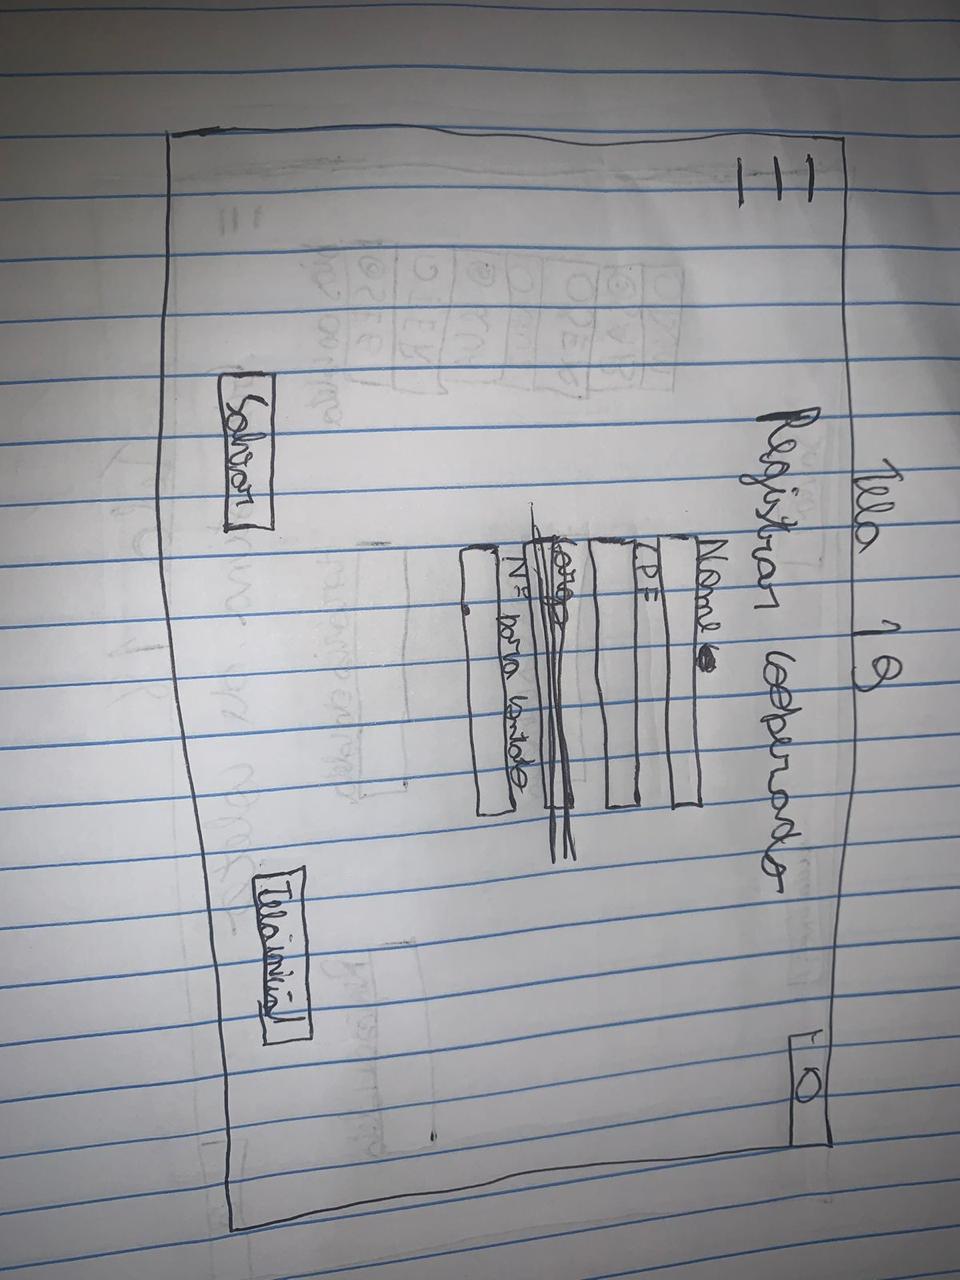 Tela 10
Registrar cooperado
Nome
CPF
Cargo
Nº para contato
Salvar
Tela inicial